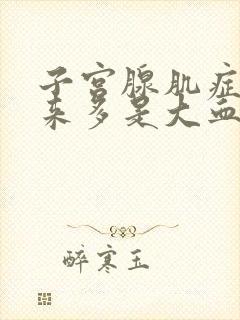 子宫腺肌症
来多是大血
醉寒玉